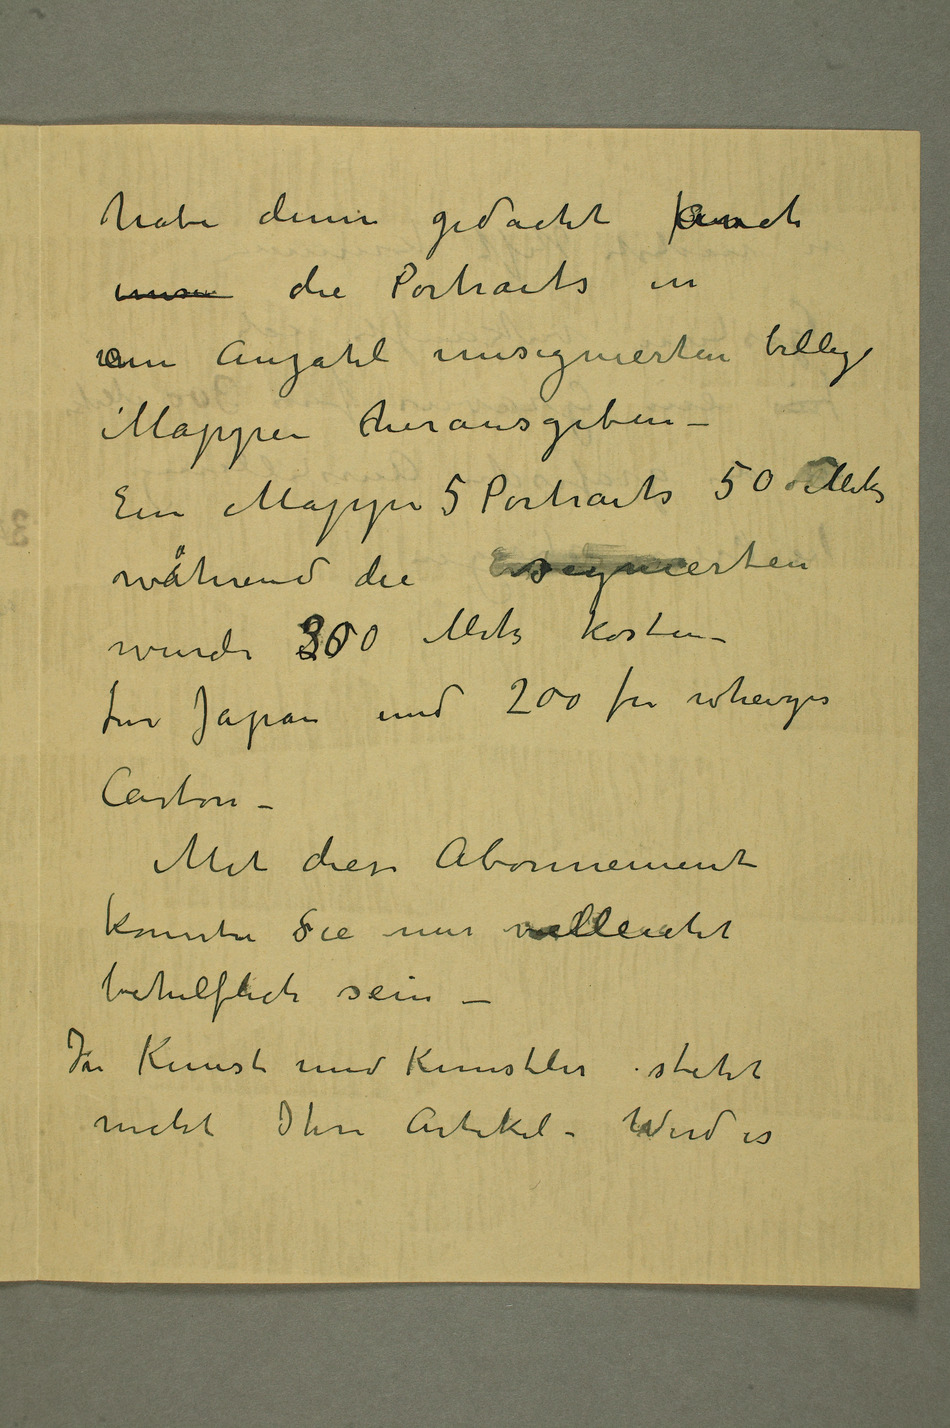 habe denn gedacht auch
die Portraits in
ein Anzahl unsignierten billige
Mappen herausgeben –
Ein Mappe 5 Portraits 50 Mk
während die signierten
wurde 300 Mk kosten –
für Japan und 200 für
Carton –
Mit diese Abonnement
konnten Sie mir vielleicht
behilflich sein –
In Kunst und Kunstler steht
nicht Ihre Artikel – Wird es